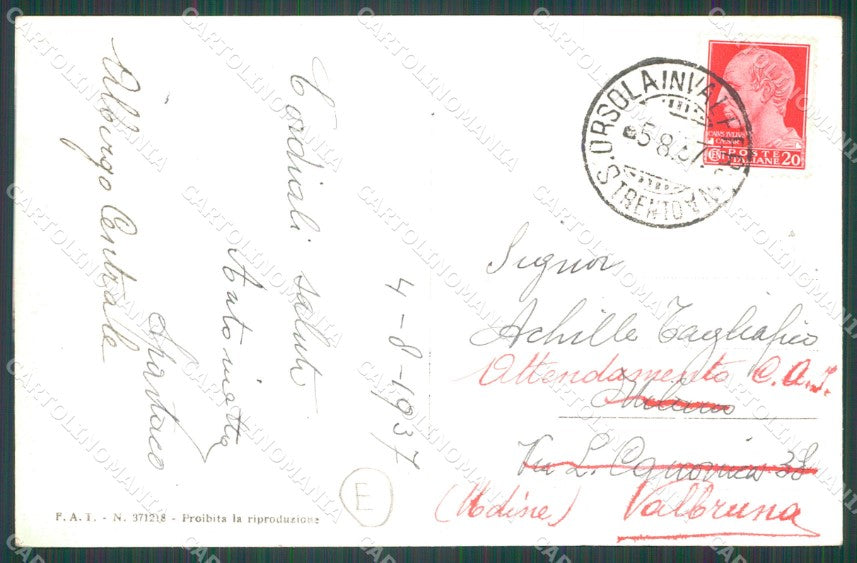 Albergo Centrale
Cordiali saluti
Antonietta
Spartaco
4-8-1937
E
F. A. T. - N. 371218 - Proibita la riproduzione
S. ORSOLA IN VAL F
5.8.37
TRENTO
CAIVS IVLIVS
CAESAR
POSTE
ITALIANE 20
Signor
Achille Tagliafico
Attendamento C.A.I.
Milano
Via L. Canonica 38
(Udine) Valbruna
CARTOLINOMANIA